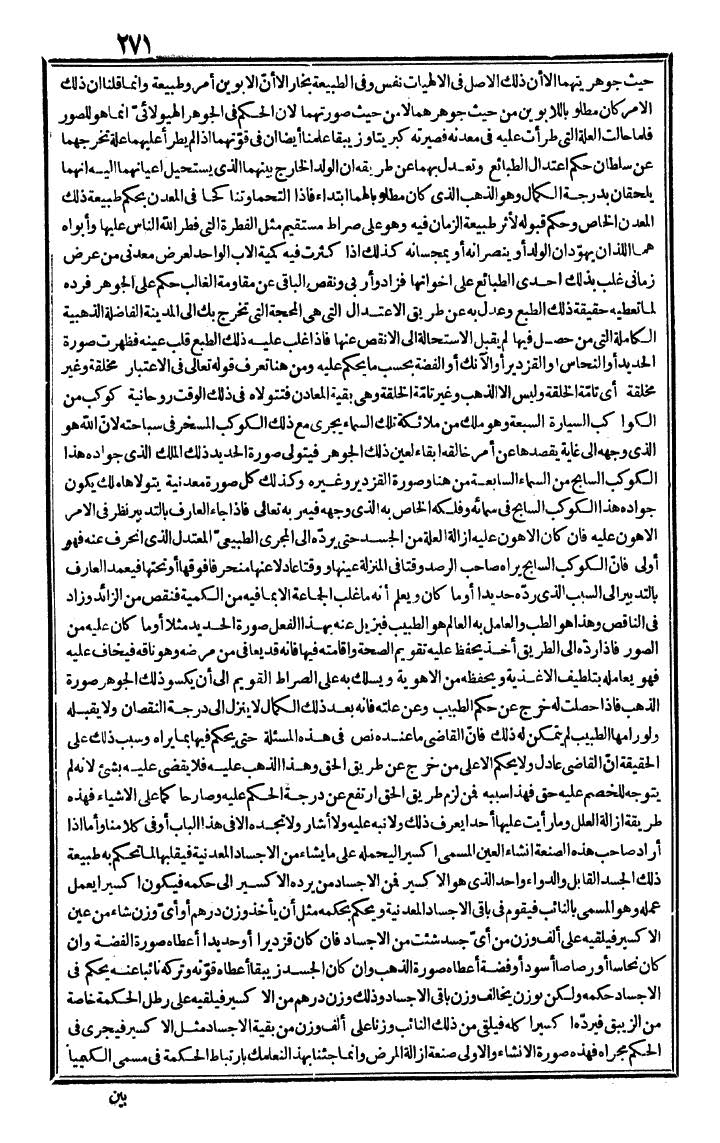 ٢٧١
حيث جوهريتهما الا أن ذلك الاصل فى الالهيات نفس وفى الطبيعة بخار الا أنّ الابوين أمر وطبيعة وانما قلنا ان ذلك
الامر كان مطلوبا للابوين من حيث جوهرهما لا من حيث صورتهما لان الحكم فى الجوهر الهيولانىّ انما هو للصور
فلما حالت العلة التى طرأت عليه فى معدنه فصيرته كبريتا وزيبقا علمنا أيضا ان فى قوّتهما اذا لم يطرأ عليهما علة تخرجهما
عن سلطان حكم اعتدال الطبائع وتعدل بهما عن طريقه ان الولد الخارج بينهما الذى يستحيل اعيانهما اليه انهما
يلحقان بدرجة الكمال وهو الذهب الذى كان مطلوبا لهما ابتداء فاذا التحما وتناكحا فى المعدن بحكم طبيعة ذلك
المعدن الخاص وحكم قبوله لأثر طبيعة الزمان فيه وهو على صراط مستقيم مثل الفطرة التى فطر الله الناس عليها وأبواه
هما اللذان يهوّدان الولد أو ينصرانه أو يمجسانه كذلك اذا كثرت فيه كمية الاب الواحد لعرض معدنى من عرض
زمانى غلب بذلك احدى الطبائع على اخواتها فزاد وأربى ونقص الباقى عن مقاومة الغالب حكم على الجوهر فرده
لما تعطيه حقيقة ذلك الطبع وعدل به عن طريق الاعتدال التى هى المحجة التى تخرج بك الى المدينة الفاضلة الذهبية
الكاملة التى من حصل فيها لم يقبل الاستحالة الى الانقص عنها فاذا غلب عليه ذلك الطبع قلب عينه فظهرت صورة
الحديد أو النحاس أو القزدير أو الآنك أو الفضة بحسب ما يحكم عليه ومن هنا تعرف قوله تعالى فى الاعتبار مخلقة وغير
مخلقة أى تامّة الخلقة وليس الا الذهب وغير تامّة الخلقة وهى بقية المعادن فتتولاه فى ذلك الوقت روحانية كوكب من
الكواكب السيارة السبعة وهو ملك من ملائكة تلك السماء يجرى مع ذلك الكوكب المسخر فى سباحته لانّ الله هو
الذى وجهه الى غاية يقصدها عن أمر خالقه ابقاء لعين ذلك الجوهر فيتولى صورة الحديد ذلك الملك الذى جواده هذا
الكوكب السابح من السماء السابعة من هنا وصورة القزدير وغيره وكذلك كل صورة معدنية يتولاها ملك يكون
جواده هذا الكوكب السابح فى سمائه وفلكه الخاص به الذى وجهه فيه ربه تعالى فاذا جاء العارف بالتدبير نظر فى الامر
الاهون عليه فان كان الاهون عليه ازالة العلة من الجسد حتى يردّه الى المجرى الطبيعىّ المعتدل الذى انحرف عنه فهو
أولى فانّ الكوكب السابح يراه صاحب الرصد وقتا فى المنزلة عينها وقتا عادلا عنها منحرفا فوقها أو تحتها فيعمد العارف
بالتدبير الى السبب الذى ردّه حديدا أو ما كان ويعلم أنه ما غلب الجماعة الا بما فيه من الكمية فنقص من الزائد وزاد
فى الناقص وهذا هو الطب والعامل به العالم هو الطبيب فيزيل عنه بهذا الفعل صورة الحديد مثلا أو ما كان عليه من
الصور فاذا ردّه الى الطريق أخذ يحفظ عليه تقويم الصحة واقامته فيها فانه قد يعافى من مرضه وهو ناقه فيخاف عليه
فهو يعامله بتلطيف الاغذية ويحفظه من الاهوية ويسلك به على الصراط القويم الى أن يكسو ذلك الجوهر صورة
الذهب فاذا حصلت له خرج عن حكم الطبيب وعن علته فانه بعد ذلك الكمال لا ينزل الى درجة النقصان ولا يقبله
ولو رامها الطبيب لم يتمكن له ذلك فانّ القاضى ما عنده نص فى هذه المسئلة حتى يحكم فيها بما يراه وسبب ذلك على
الحقيقة انّ القاضى عادل ولا يحكم الا على من خرج عن طريق الحق وهذا الذهب عليه فلا يقضى عليه بشئ لانه لم
يتوجه للخصم عليه حق فهذا سببه فمن لزم طريق الحق ارتفع عن درجة الحكم عليه وصار حاكما على الاشياء فهذه
طريقة ازالة العلل وما رأيت عليها أحدا يعرف ذلك ولا نبه عليه ولا أشار ولا تجده الا فى هذا الباب أو فى كلامنا وأما اذا
أراد صاحب هذه الصنعة انشاء العين المسمى اكسيرا ليحمله على ما يشاء من الاجساد المعدنية فيقلبها لما تحكم به طبيعة
ذلك الجسد القابل والدواء واحد الذى هو الاكسير فمن الاجساد من يرده الاكسير الى حكمه فيكون اكسيرا يعمل
عمله وهو المسمى بالنائب فيقوم فى باقى الاجساد المعدنية ويحكم بحكمه مثل أن يأخذ وزن درهم أو أىّ وزن شاء من عين
الاكسير فيلقيه على ألف وزن من أىّ جسد شئت من الاجساد فان كان قزديرا أو حديدا أعطاه صورة الفضة وان
كان نحاسا أو رصاصا أسود أو فضة أعطاه صورة الذهب وان كان الجسد زيبقا أعطاه قوّته وتركه نائبا عنه يحكم فى
الاجساد حكمه ولكن بوزن يخالف وزن باقى الاجساد وذلك وزن درهم من الاكسير فيلقيه على رطل الحكمة خاصة
من الزيبق فيردّه اكسيرا كله فيلقى من ذلك النائب وزنا على ألف وزن من بقية الاجساد مثل الاكسير فيجرى فى
الحكم مجراه فهذه صورة الانشاء والاولى صنعة ازالة المرض وانما جئنا بهذا لنعلمك بارتباط الحكمة فى مسمى الكيميا
بين